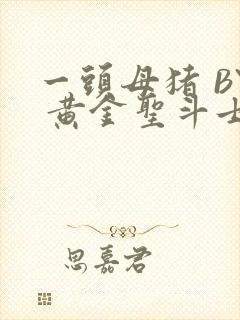 一頭母猪 BY
黄金聖斗士
思嘉君